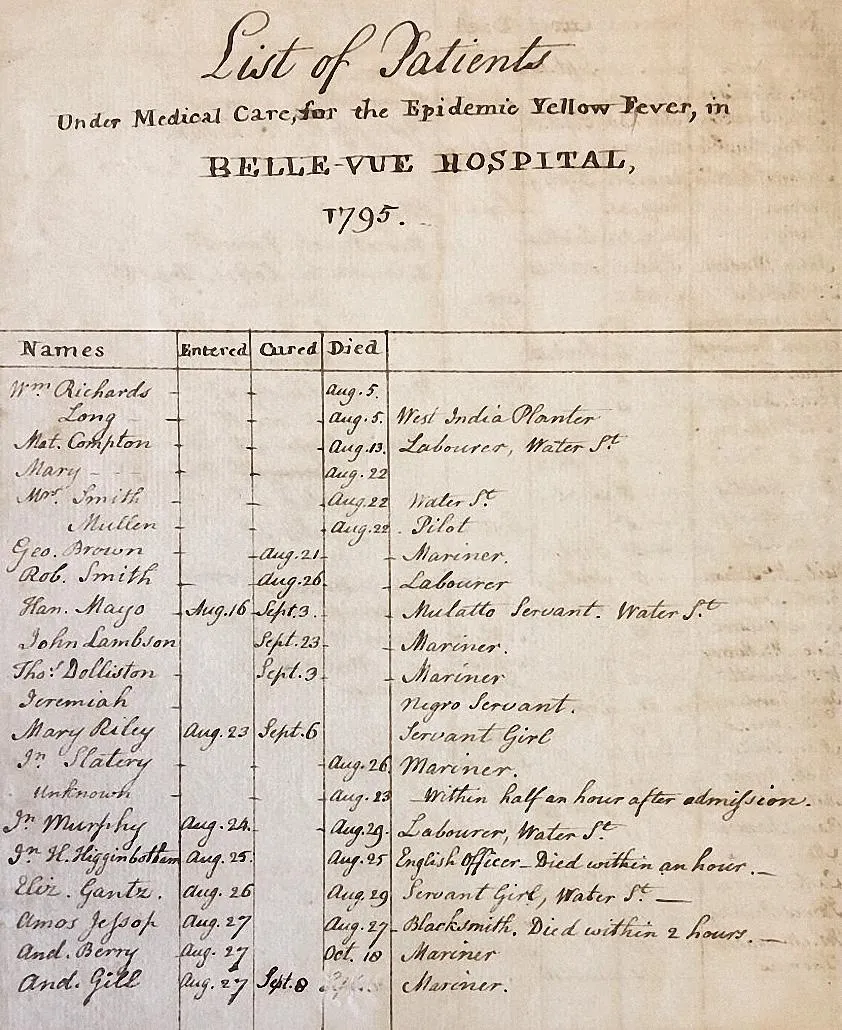 List of Patients
Under Medical Care, for the Epidemic Yellow Fever, in
BELLE-VUE HOSPITAL,
1795.
Names Entered Cured Died
Wm Richards Aug. 5.
Long Aug. 5. West India Planter
Mat. Compton Aug. 13. Labourer, Water St
Mary Aug. 22
Mrs. Smith Aug. 22 Water St.
Mullen Aug. 22. Pilot
Geo. Brown Aug. 21 Mariner.
Rob. Smith Aug. 26 Labourer
Han. Mayo Aug. 16 Sept. 3. Mulatto Servant. Water St
John Lambson Sept. 23 Mariner.
Thos. Dolliston Sept. 3 Mariner
Jeremiah Negro Servant.
Mary Riley Aug. 23 Sept. 6 Servant Girl
Jn Slatery Aug. 26. Mariner.
Unknown Aug. 23 Within half an hour after admission.
Jn Murphy Aug. 24. Aug. 29. Labourer, Water St
Jn H. Higginbotham Aug. 25. Aug. 25 English Officer - Died within an hour. -
Eliz. Gantz. Aug. 26 Aug. 29 Servant Girl, Water St. -
Amos Jessop Aug. 27 Aug. 27 - Blacksmith. Died within 2 hours. -
And. Berry Aug. 27 Oct. 10 Mariner
And. Gill Aug. 27 Sept. 8 Mariner.